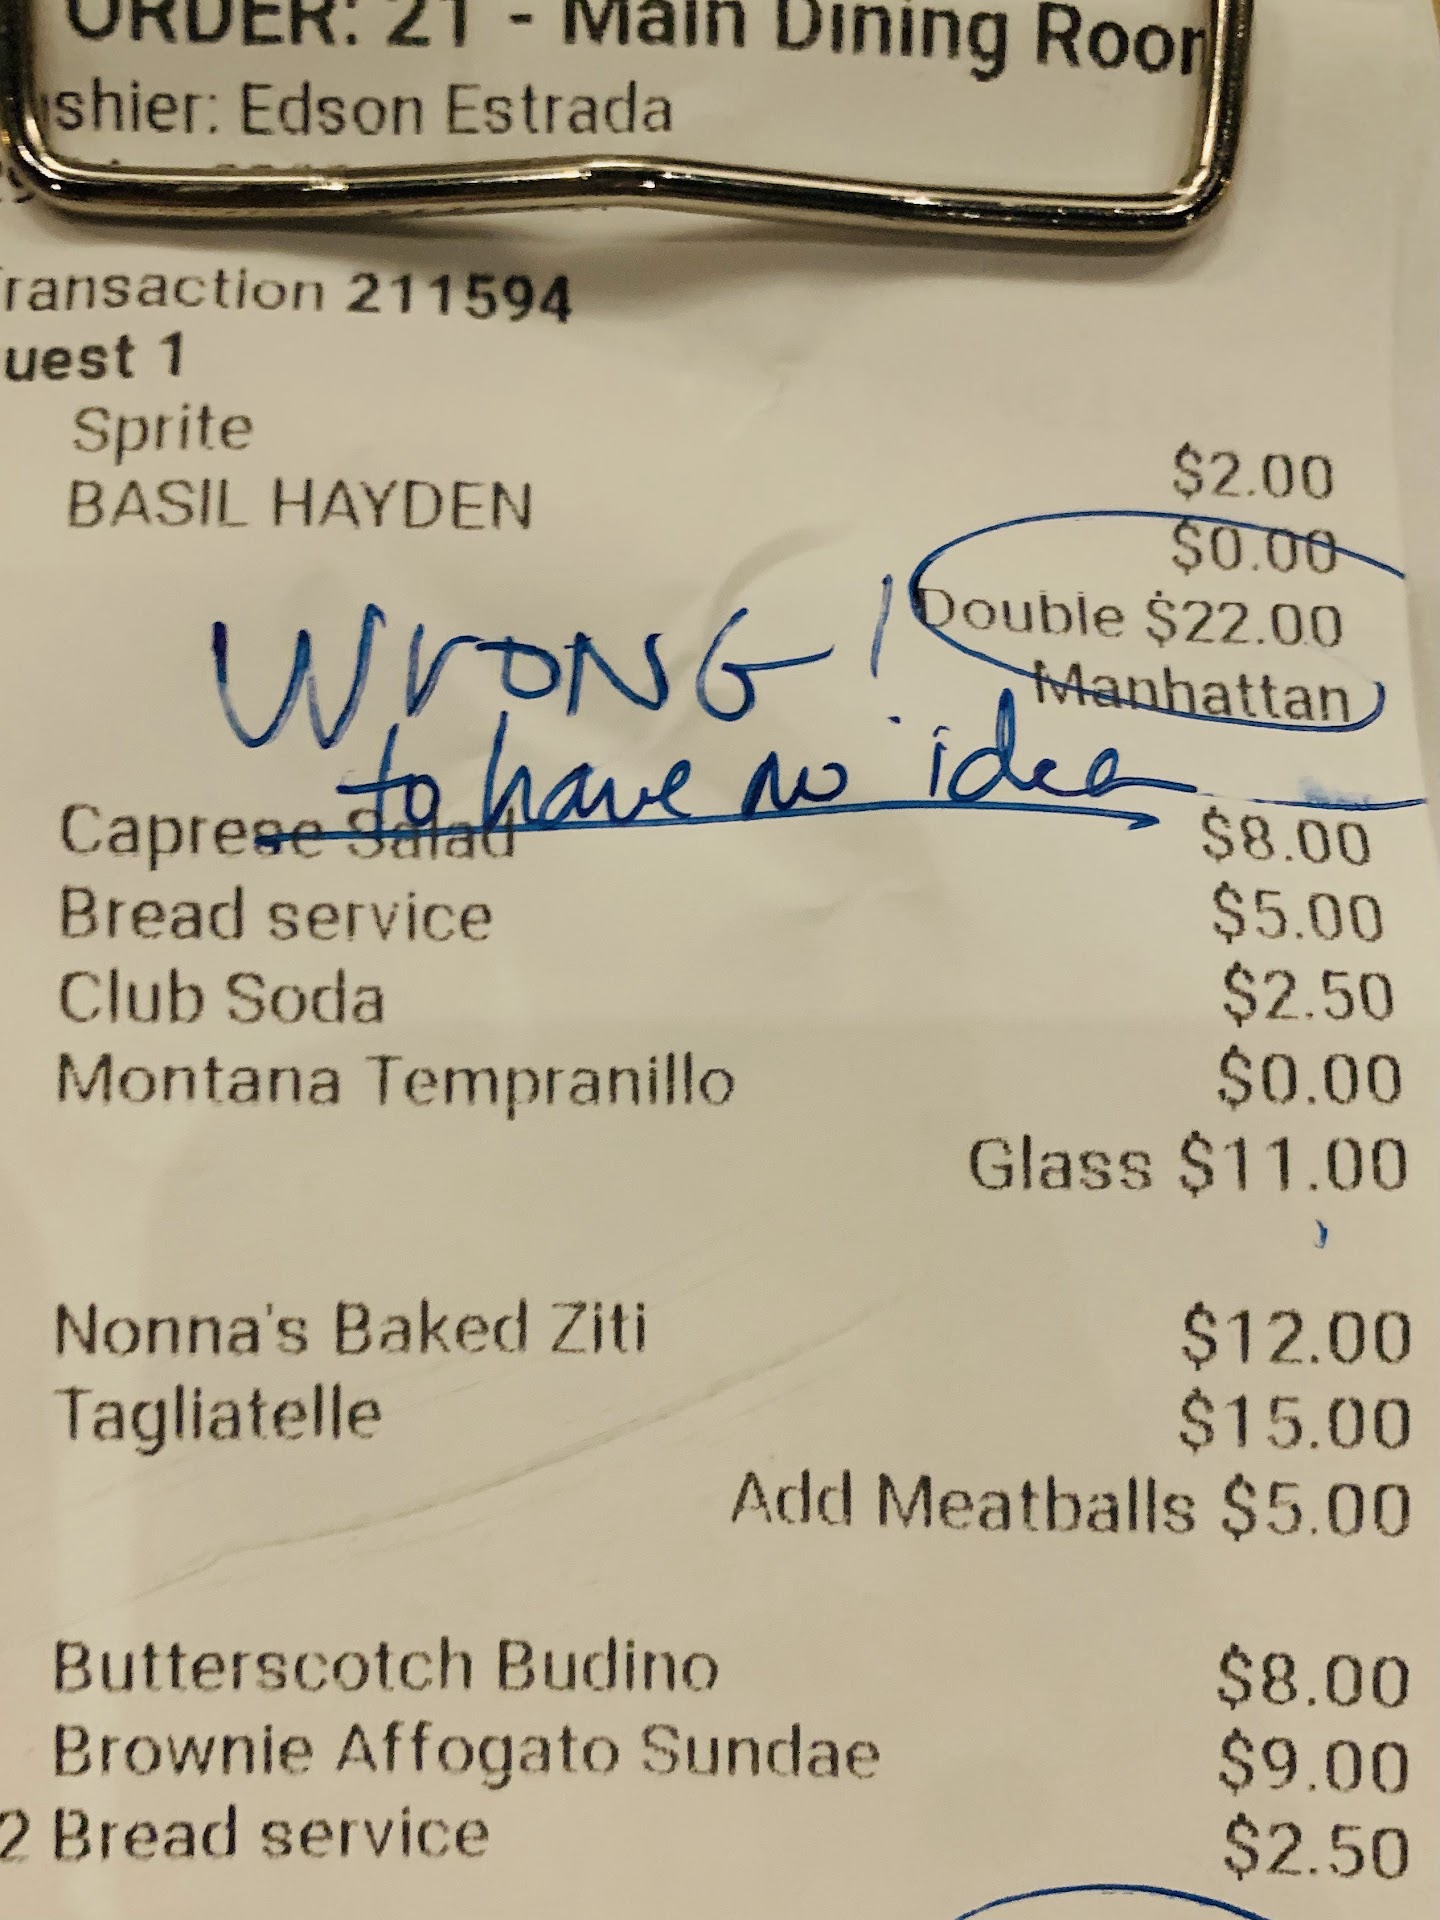 ORDER: 21 - Main Dining Room
shier: Edson Estrada
ransaction 211594
uest 1
Sprite $2.00
BASIL HAYDEN $0.00
Double $22.00
Manhattan
WRONG!
to have no idea
Caprese Salad $8.00
Bread service $5.00
Club Soda $2.50
Montana Tempranillo $0.00
Glass $11.00
Nonna's Baked Ziti $12.00
Tagliatelle $15.00
Add Meatballs $5.00
Butterscotch Budino $8.00
Brownie Affogato Sundae $9.00
2 Bread service $2.50